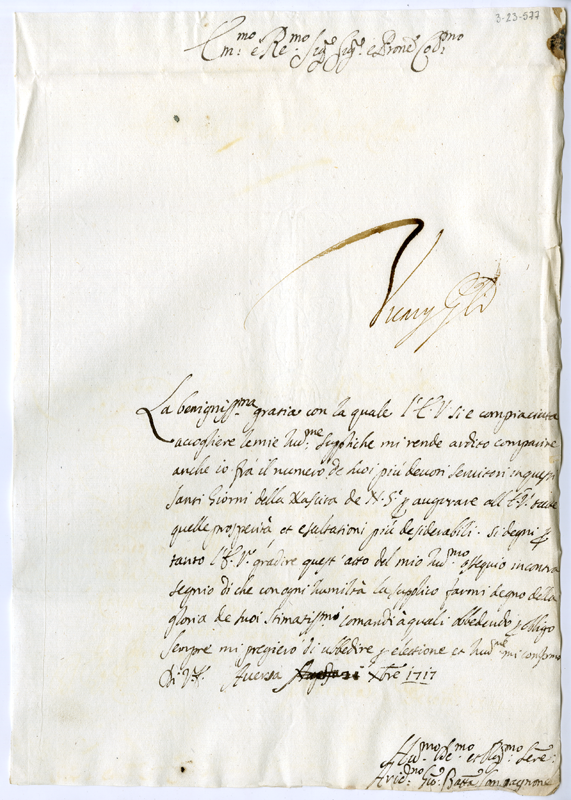 3-23-577
Em:mo e Re:mo Sig:e Sig:e e Prone Col:mo
La benigniss:ma gratia con la quale l'E.V. si e compiaciuta
accogliere le mie hu:me suppliche mi rende ardito comparire
anche io frà il numero de suoi più devoti servitori in questi
santi Giorni della Nascita de N.S.re p augurare all'E.V. tutte
quelle prosperità et esaltationi più desiderabili. si degni p
tanto l'E.V. gradire quest'atto del mio hu:mo ossequio in contra
segnio di che con ogni humiltà la supplico farmi degno della
gloria de suoi stimatiss:mi comandi à quali obbedendo p obligo
sempre mi pregierò di ubbedire p elettione et hu:me mi confermo
Di V.E. Aversa Xbre 1717
Hu:mo De:mo et Obl:mo Serre:
Gio: Batta Compagnone